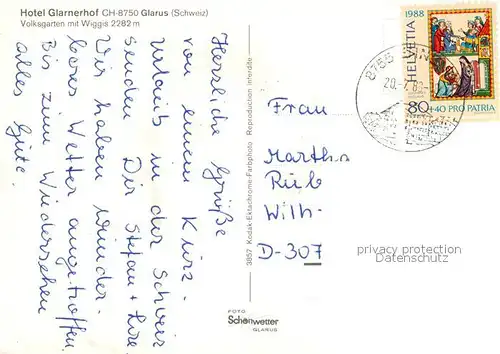 Hotel Glarnerhof CH-8750 Glarus (Schweiz)
Volksgarten mit Wiggis 2282 m
Herzliche Grüße
von einem Kurz-
urlaub in der Schweiz
senden Dir Stefan +
Wir haben wunder-
bares Wetter angetroffen.
Bis zum Wiedersehen
alles Gute.
3857 Kodak-Ektachrome-Farbphoto Reproduction interdite
FOTO
Schönwetter
GLARUS
1988
HELVETIA
80+40 PRO PATRIA
Frau
Martha
Rüb
Wilh-
D-307
privacy protection
Datenschutz